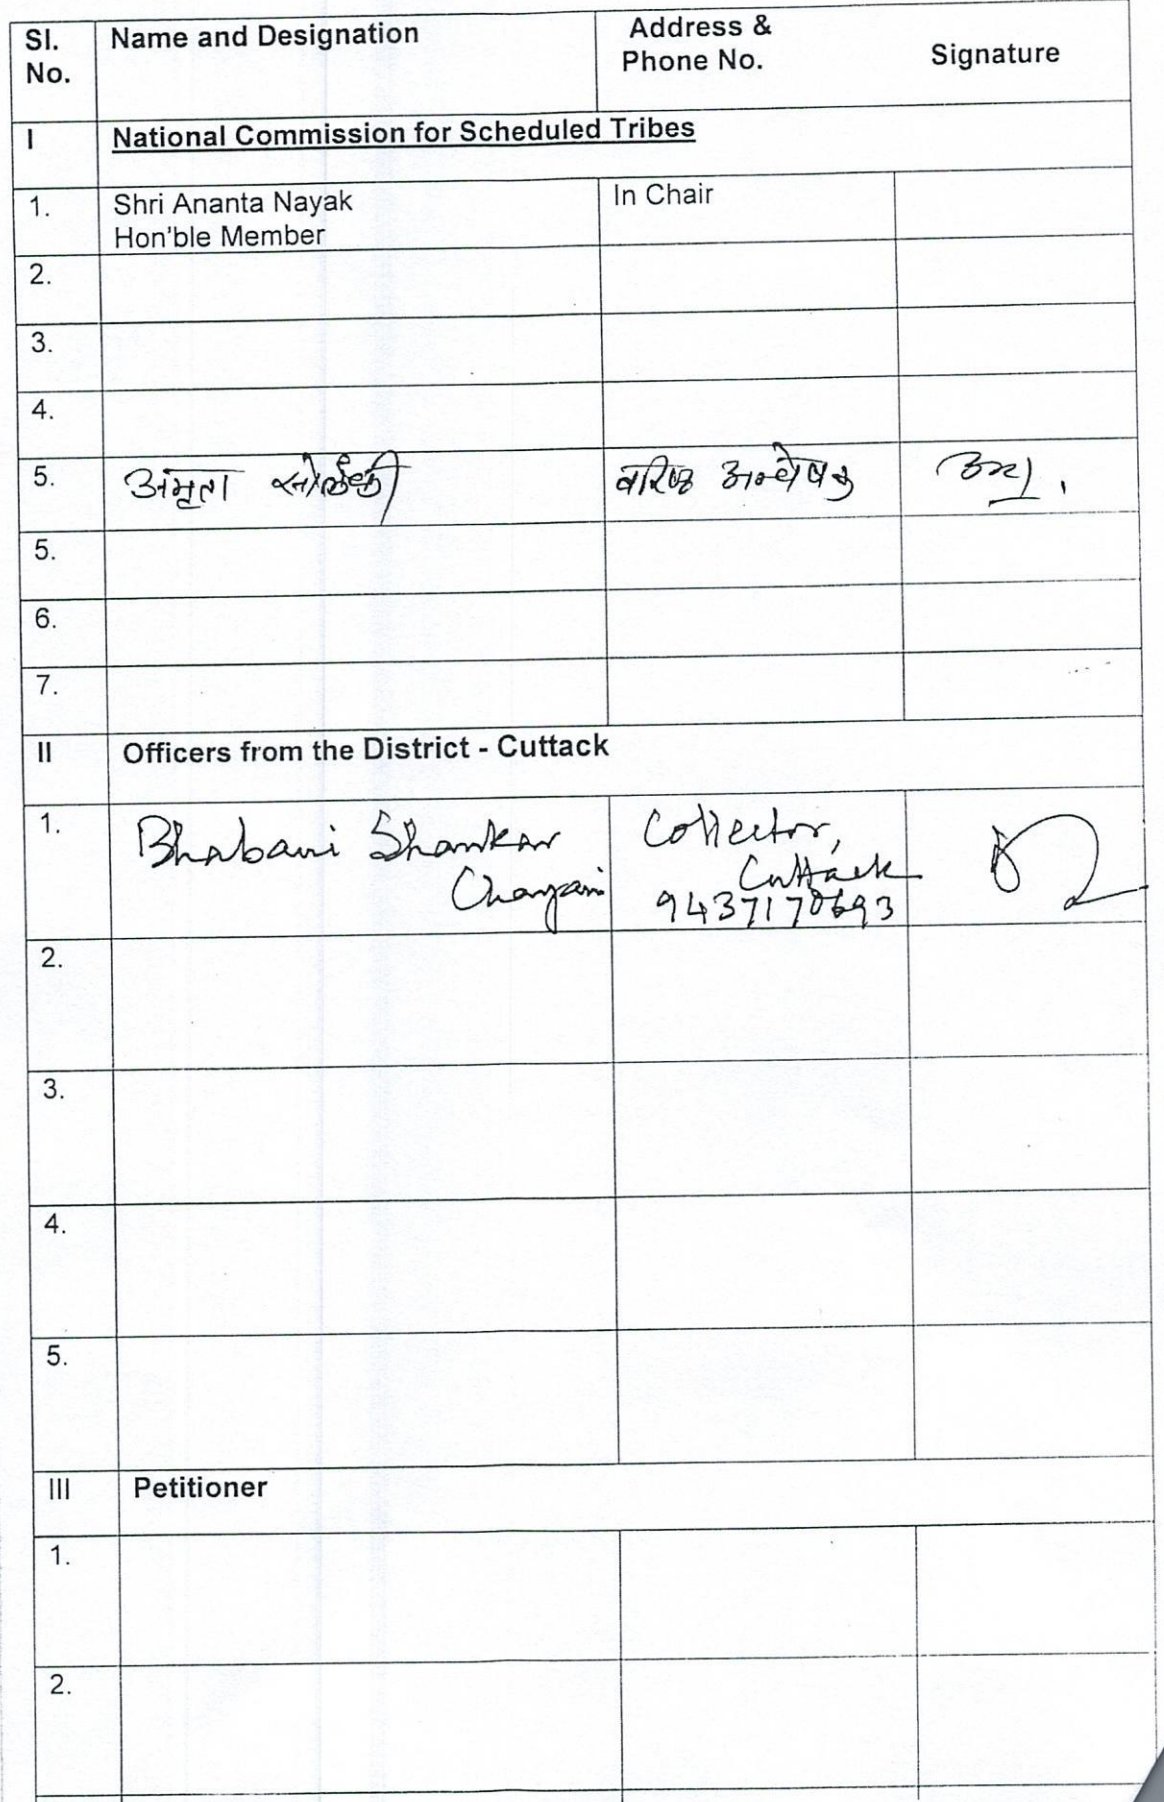 Sl. No. Name and Designation Address & Phone No. Signature
I National Commission for Scheduled Tribes
1. Shri Ananta Nayak In Chair
Hon'ble Member
2.
3.
4.
5. अमृता सोलंकी वरिष्ठ अन्वेषक
5.
6.
7.
II Officers from the District - Cuttack
1. Bhabani Shankar Collector,
Chayani Cuttack
9437170693
2.
3.
4.
5.
III Petitioner
1.
2.